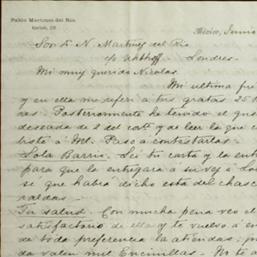 Pablo Martinez del Rio
México, Junio
Sor Dn N. Martinez del Rio
c/o Uhthoff. Londres.
Mi muy querido Nicolas
Mi ultima fue
y en ella me referi a tus gratas 25
Posteriormente he tenido el gusto
deseada de 2 del cote y de leer la que e
a Ml. Paso a contestarlas.
Lola Barrio. Lei tu carta y la entre
para que la entregara a su vez a Lo
se que habia dicho esta del chasco
Tu salud. Con mucha pena veo el
satisfactorio de ella y te vuelvo a en
de toda preferencia la atiendas; pu
da valen mil Encinillas. No te a